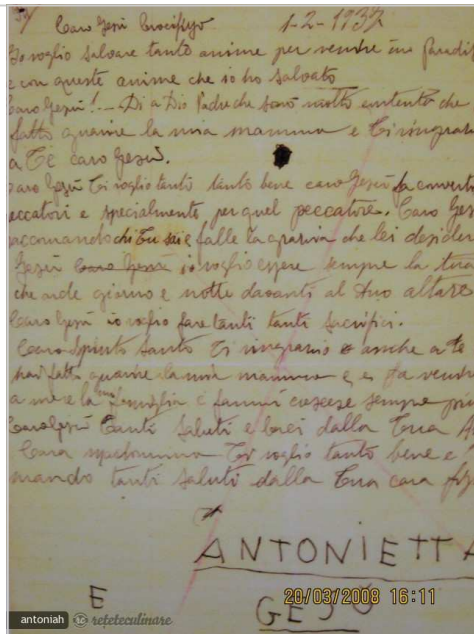 Caro Gesù Crocifisso 1-2-1937
Io voglio salvare tante anime per vendre in Paradis
e con queste anime che io ho salvato
Caro Gesù!-- Di a Dio Padre che sono molto contento che
fatto guarire la mia mamma e Ti ringraz
a Te caro Gesù.
Caro Gesù Ti voglio tanto tanto bene caro Gesù fa convert
eccatori e specialmente per quel peccatore. Caro Ges
accomando chi Tu sai e falle la grazia che lei desider
Gesù caro Gesù io voglio essere sempre la tua
che arde giorno e notte davanti al tuo altare
Caro Gesù io voglio fare tanti tanti sacrifici.
Caro Spirito Santo Ti ringrazio anche a te
hai fatto guarire la mia mamma e fa
a me e la mia famiglia e fammi crescere sempre
Caro Gesù Tanti Saluti e baci dalla Tua
Cara Ti voglio tanto bene e
mando tanti saluti dalla Tua cara
ANTONIETTA
E GESÙ
20/03/2008 16:11
antoniah refeteculinare